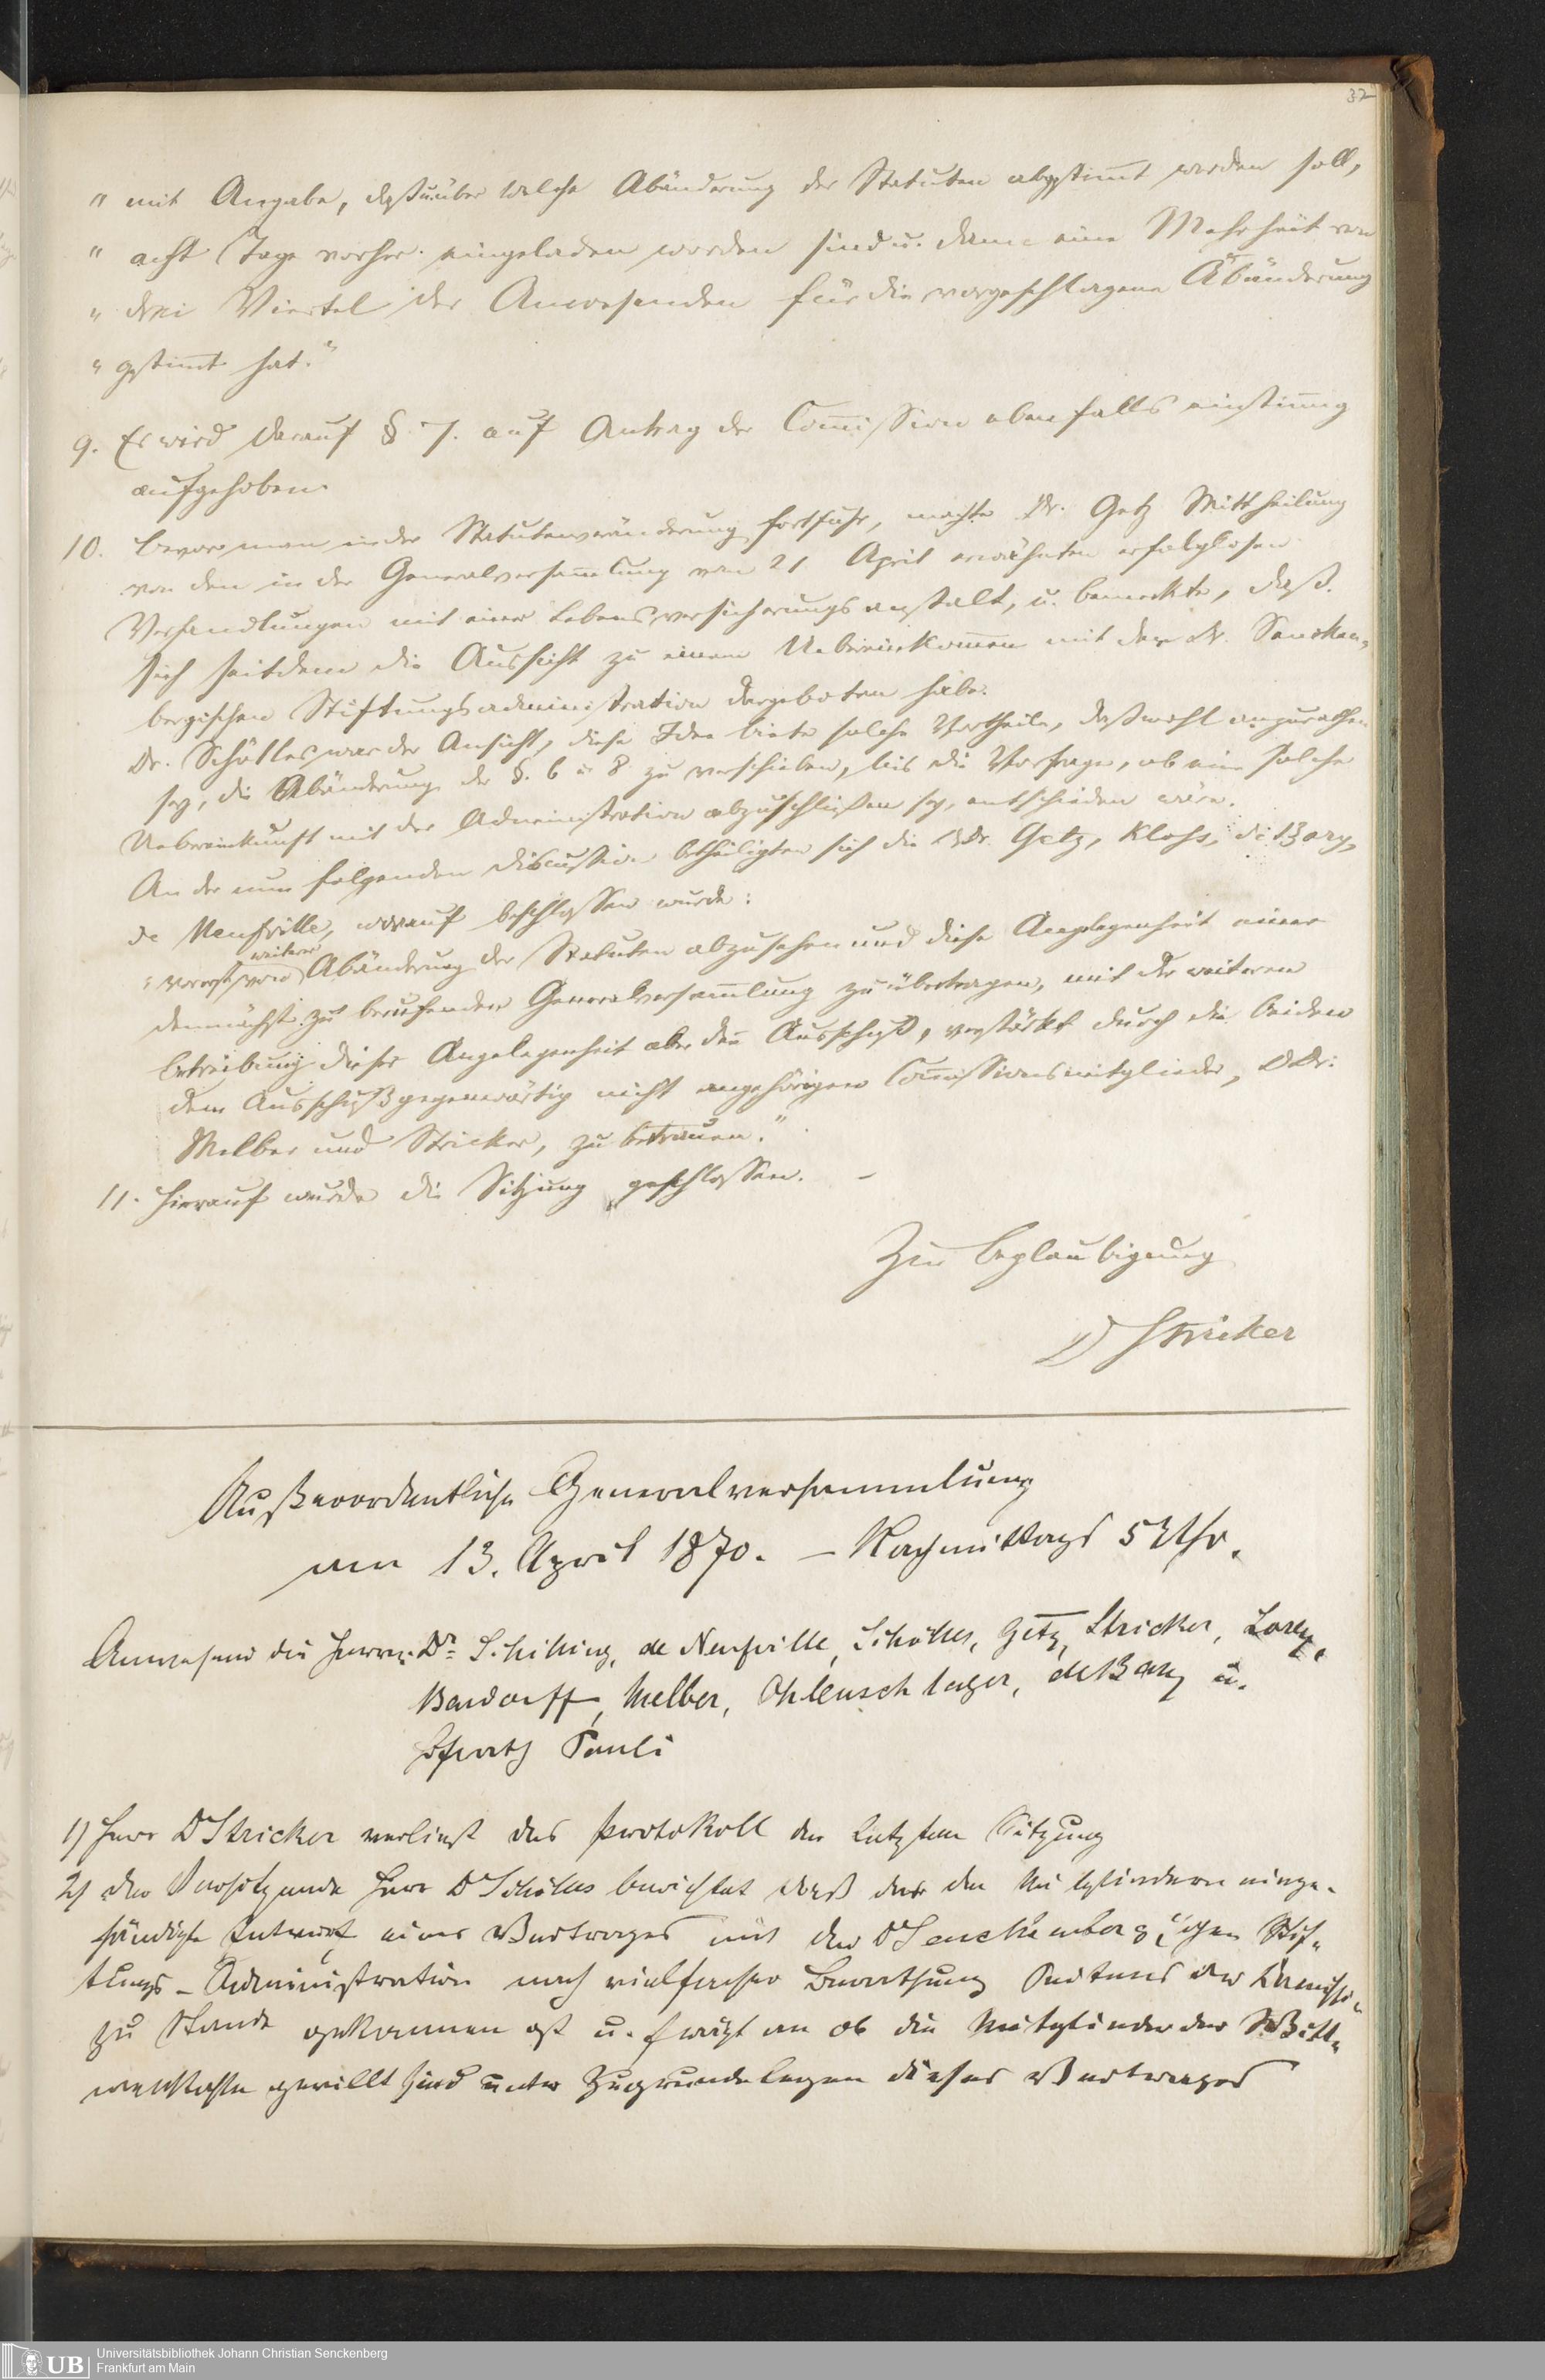 32
" mit Angabe, daß u. über welche Abänderung der Statuten abgestimt werden soll,
" acht Tage vorher eingeladen worden sind u. dann eine Mehrheit von
" drei Viertel der Anwesenden für die vorgeschlagene Abänderung
" gestimt hat."
9. Es wird darauf §. 7. auf Antrag der Comission ebenfalls einstimig
aufgehoben.
10. Bevor man in der Statutenveränderung fortfuhr, machte Dr. Getz Mittheilung
von den in der Generalversamlung vom 21 April erwähnten erfolglosen
Verhandlungen mit einer Lebensversicherungsanstalt, u. bemerkte, daß
sich seitdem die Aussicht zu einem Uebereinkomen mit der Dr. Sencken-
bergischen Stiftungsadministration dargeboten habe.
Dr. Schölles war der Ansicht, diese Idee biete solche Vortheile, daß wohl anzurathen
sey, die Abänderung der §. 6 u 8 zu verschieben, bis die Vorfrage, ob eine solche
Uebereinkunft mit der Administration abzuschließen sey, entschieden wäre.
An der nun folgenden Discussion betheiligten sich die DDr. Getz, Kloss, de Bary,
de Neufville, worauf beschlossen wurde:
weiterer
" vorerst von Abänderung der Statuten abzusehen und diese Angelegenheit einer
demnächst zu berufenden Generalversamlung zu übertragen, mit der weiteren
Betreibung dieser Angelegenheit aber den Ausschuß, verstärkt durch die beiden
dem Ausschuß gegenwärtig nicht angehörigen Comissionsmitglieder, DDr:
Melber und Stricker, zu betrauen."
11. Hierauf wurde die Sitzung geschlossen. –
Zur Beglaubigung
Dr Stricker
Außerordentliche Generalversammlung
am 13. April 1870. – Nachmittags 5 Uhr.
Anwesend die Herren: Dr. Schilling, de Neufville, Schölles, Getz, Stricker, Lorey,
Bardorff, Melber, Ohlenschlager, de Bary u.
Hfrath Pauli
1) Herr Dr Stricker verliest das Protokoll der letzten Sitzung
2) der Vorsitzende Herr Dr Schölles berichtet daß der den Mitgliedern einge-
händigte Entwurf eines Vertrages mit der Dr Senckenbergischen Stif-
tungs-Administration nach vielfacher Berathung Seitens der Commission
zu Stande gekommen ist u. frägt an ob die Mitglieder der Witt-
wenkasse gewillt sind unter Zugrundelegen dieses Vertrages
Universitätsbibliothek Johann Christian Senckenberg
Frankfurt am Main
UB